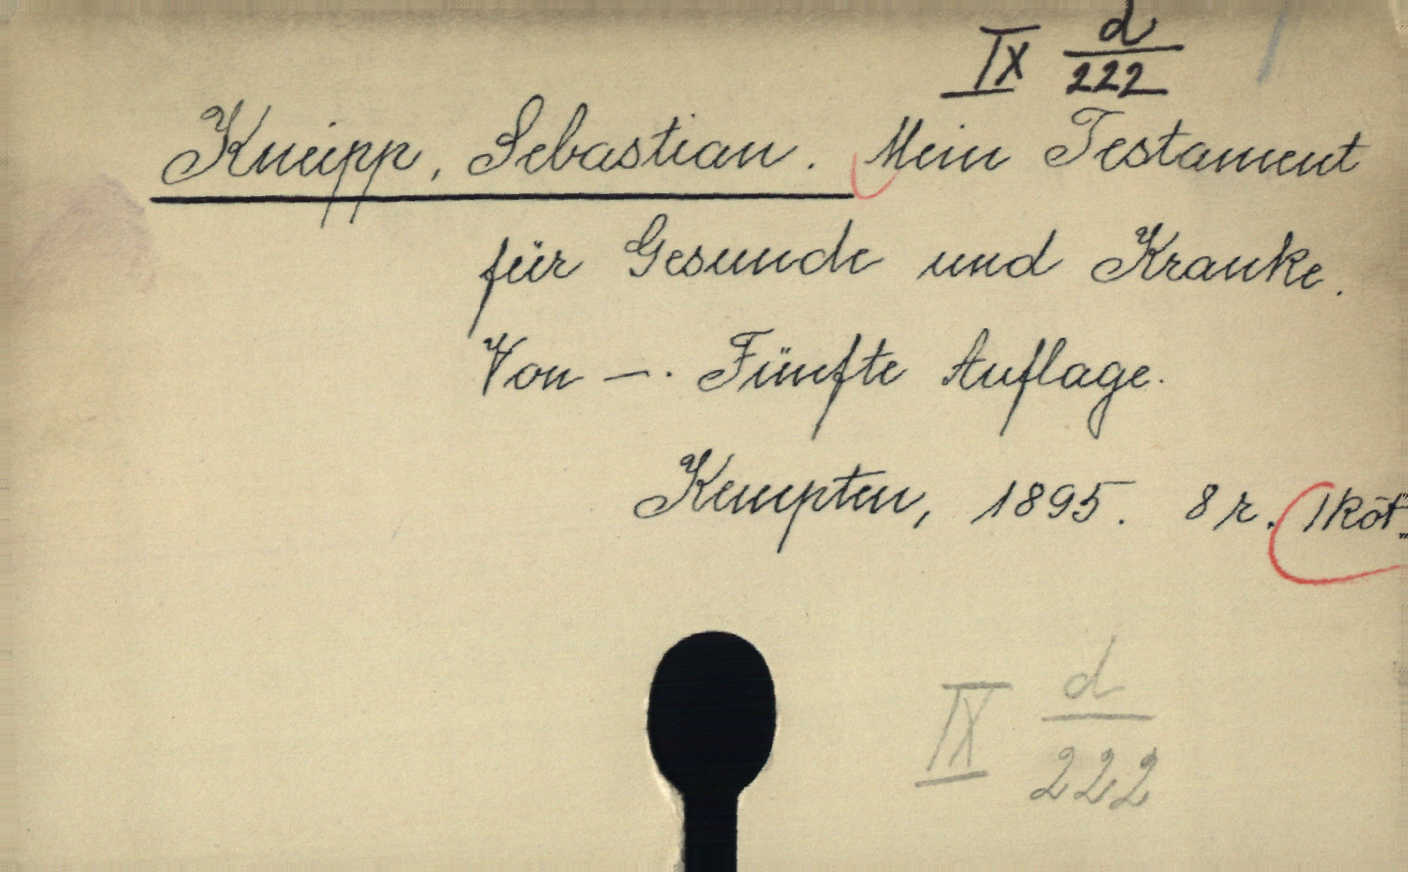 IX d/222
Kneipp, Sebastian. Mein Testament
für Gesunde und Kranke.
Von —. Fünfte Auflage.
Kempten, 1895. 8r. 1 köt.
IX d/222